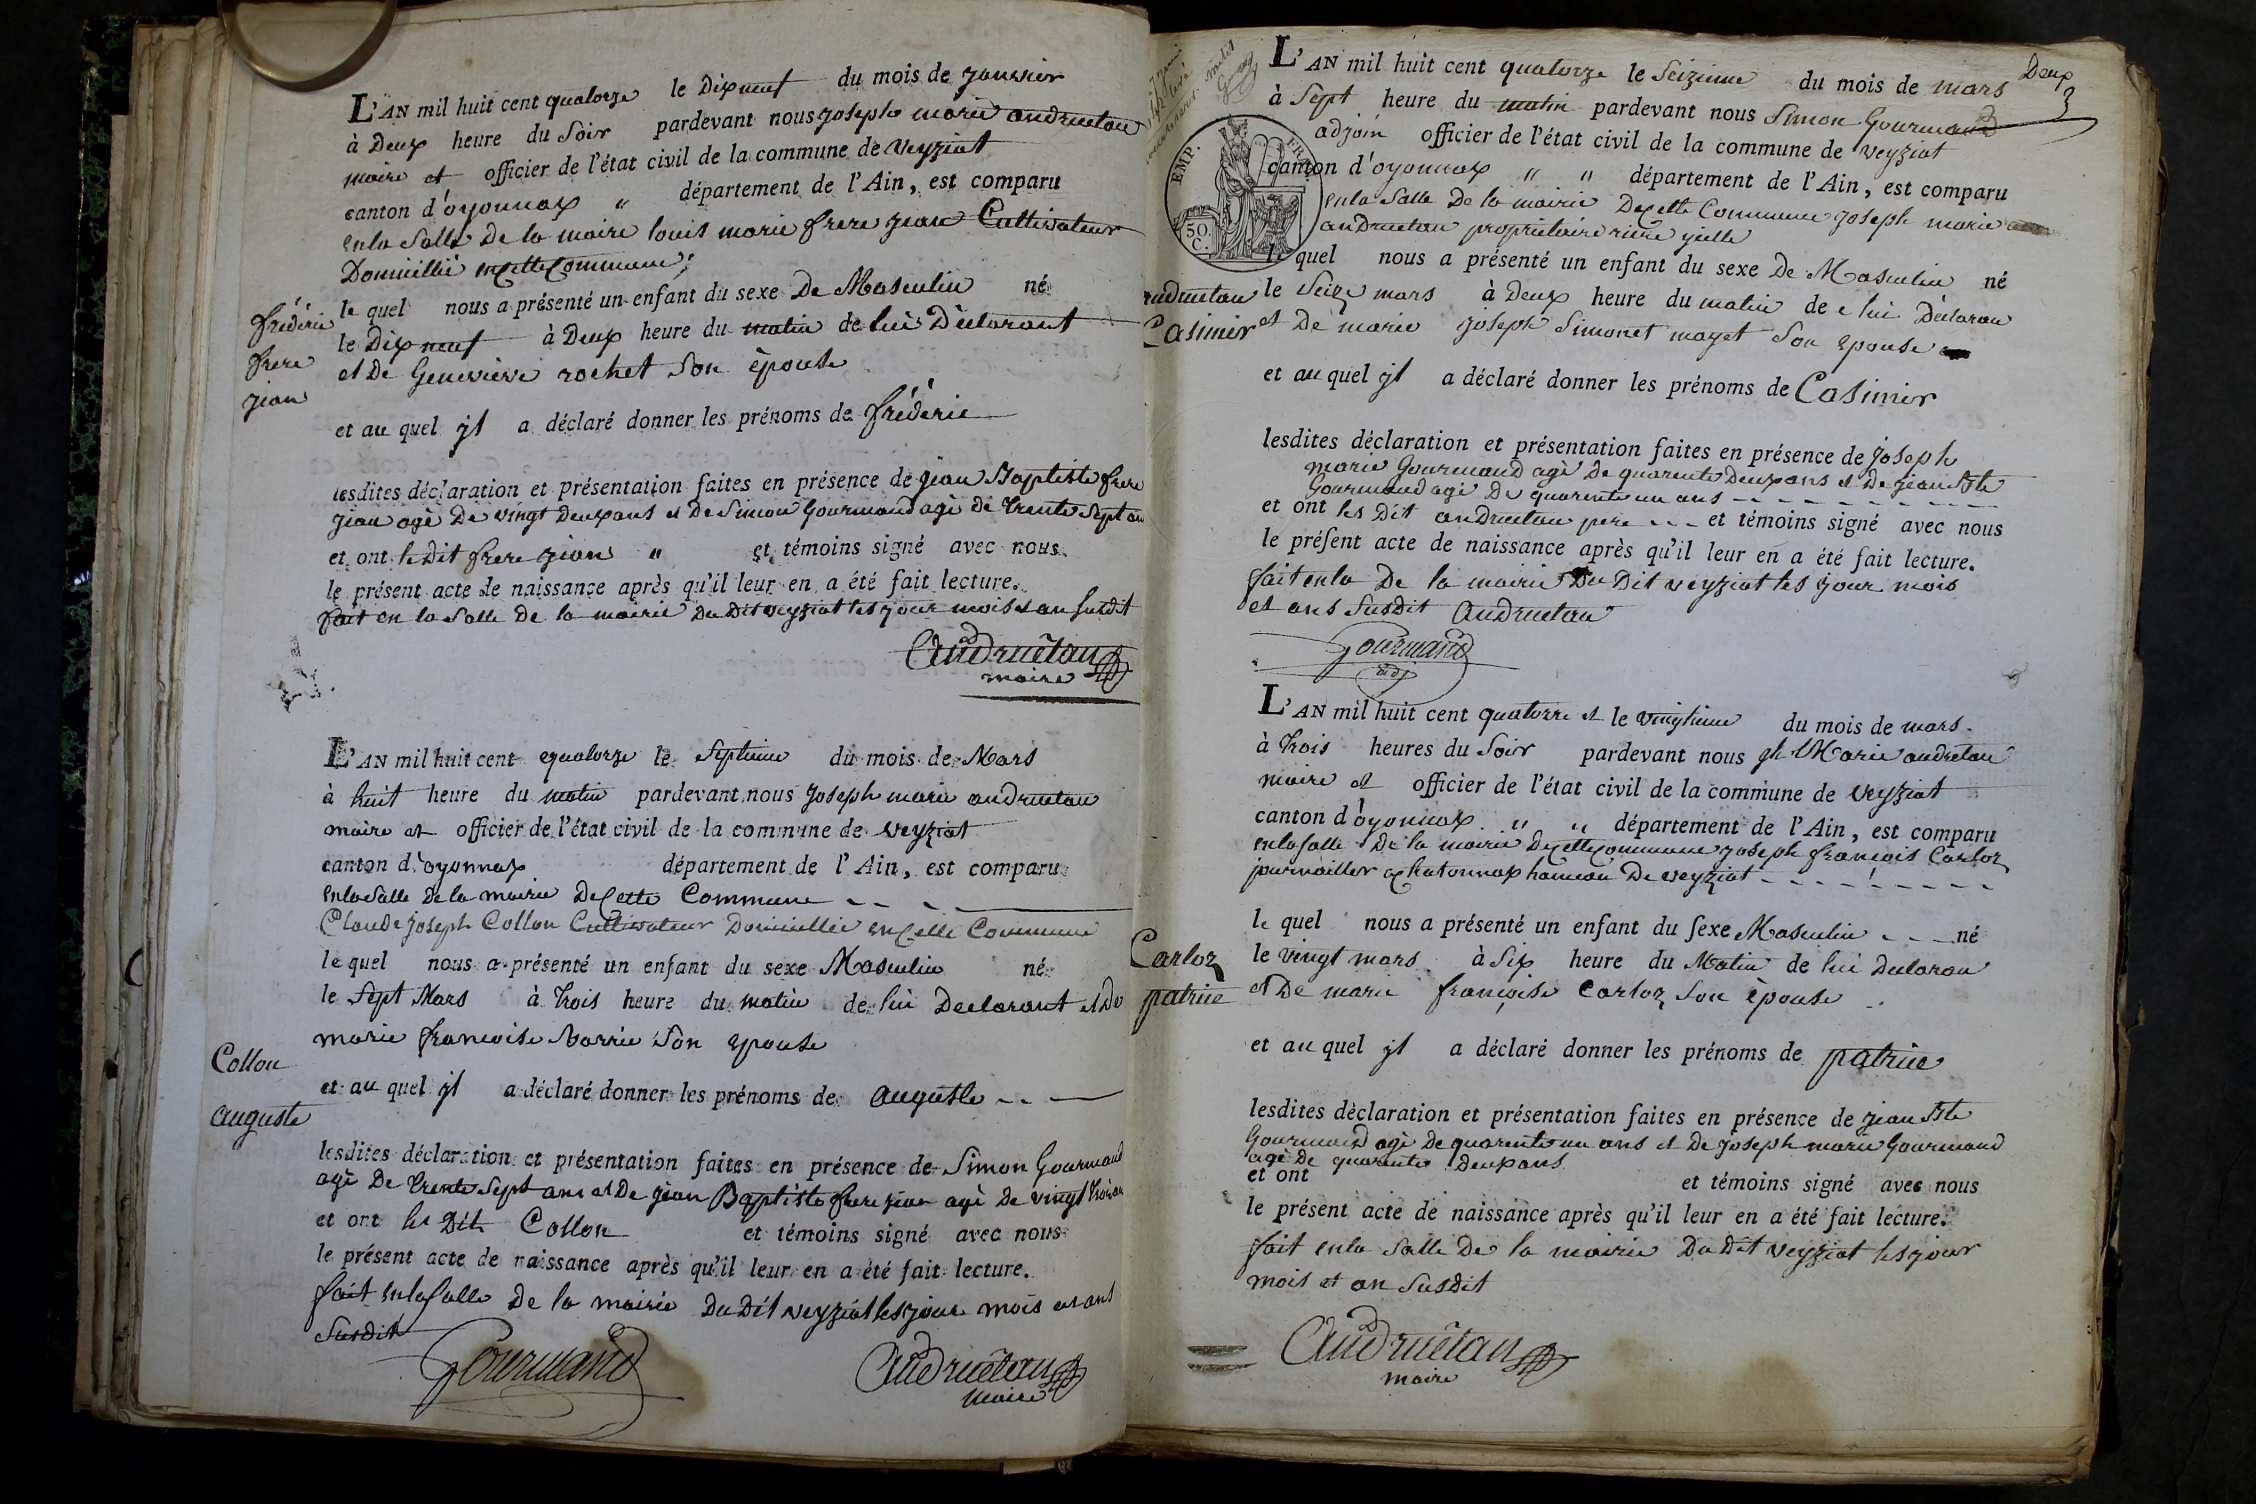 L'AN mil huit cent quatorze le Dix neuf du mois de Janvier
à Deux heure du Soir pardevant nous Joseph marie andruetan
maire et officier de l'état civil de la commune de veyziat
canton d'oyonnax " département de l'Ain, est comparu
en la Salle De la mairie louis marie frere jean Cultivateur
Domicillié en Cette Commune;
le quel nous a présenté un enfant du sexe De Masculin né
le Dix neuf à Deux heure du matin de lui Déclarant
et De Genevieve rochet Son épouse
fréderic
frere
jean
et au quel jl a déclaré donner les prénoms de fréderic
lesdites déclaration et présentation faites en présence de jean Baptiste frere
jean agé De vingt Deux ans et De Simon Gourmand agé de trente Sept an
et ont le Dit frere jean " et témoins signé avec nous
le présent acte de naissance après qu'il leur en a été fait lecture.
fait en la Salle De la mairie Du Dit veyziat les jour mois et an susdit
Andruétan
maire
L'AN mil huit cent quatorze le Septieme du mois de Mars
à huit heure du matin pardevant nous Joseph marie andruetan
maire et officier de l'état civil de la commune de veyziat
canton d'oyonnax département de l'Ain, est comparu
en la Salle De la mairie De Cette Commune
Claude joseph Collon Cultivateur Domicillié en Cette Commune
le quel nous a présenté un enfant du sexe Masculin né
le Sept Mars à trois heure du matin de lui Declarant et De
marie francoise Barrie Son epouse
Collon
auguste
et au quel jl a déclaré donner les prénoms de auguste
lesdites déclaration et présentation faites en présence de Simon Gourmand
agé De trente Sept ans et De jean Baptiste frere jean agé de vingt trois an
et ont les Dit Collon et témoins signé avec nous
le présent acte de naissance après qu'il leur en a été fait lecture.
fait en la Salle De la mairie Du Dit veyziat les jour mois et ans
Susdit
Gourmand
Andruétan
maire
Deux
L'AN mil huit cent quatorze le Seizieme du mois de mars
à Sept heure du matin pardevant nous Simon Gourmand
adjoin officier de l'état civil de la commune de veyziat
canton d'oyonnax " " département de l'Ain, est comparu
en la Salle De la mairie De Cette Commune joseph marie
andruetan propriétaire
EMP. FRA
50.
C.
le quel nous a présenté un enfant du sexe De Masculin né
le Seize mars à Deux heure du matin de lui Déclaran
et De marie joseph Simonet mayet Son epouse
andruetan
Casimir
et au quel jl a déclaré donner les prénoms de Casimir
lesdites déclaration et présentation faites en présence de joseph
marie Gourmand agé De quarente Deux ans et De jean Bte
Gourmand agé De quarente un ans
et ont les Dit andruetan pere et témoins signé avec nous
le présent acte de naissance après qu'il leur en a été fait lecture.
fait en la De la mairie Du Dit veyziat les jour mois
et ans Susdit Andruetan
Gourmand
adj
L'AN mil huit cent quatorze et le vingtieme du mois de mars
à trois heures du Soir pardevant nous jh Marie andruetan
maire et officier de l'état civil de la commune de veyziat
canton d'oyonnax " " département de l'Ain, est comparu
en la Salle De la mairie De Cette Commune joseph françois Carloz
journailler a chatonnax hameau De veyziat
le quel nous a présenté un enfant du sexe Masculin né
le vingt mars à Six heure du Matin de lui Declaran
et De marie françoise Carloz Son épouse
Carloz
patrice
et au quel jl a déclaré donner les prénoms de patrice
lesdites déclaration et présentation faites en présence de jean Bte
Gourmand agé De quarente un ans et De joseph marie Gourmand
agé De quarente Deux ans
et ont et témoins signé avec nous
le présent acte de naissance après qu'il leur en a été fait lecture.
fait en la Salle De la mairie Du Dit veyziat les jour
mois et an Susdit
Andruétan
maire